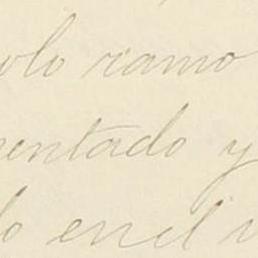 olo ramo
entado y
o en el